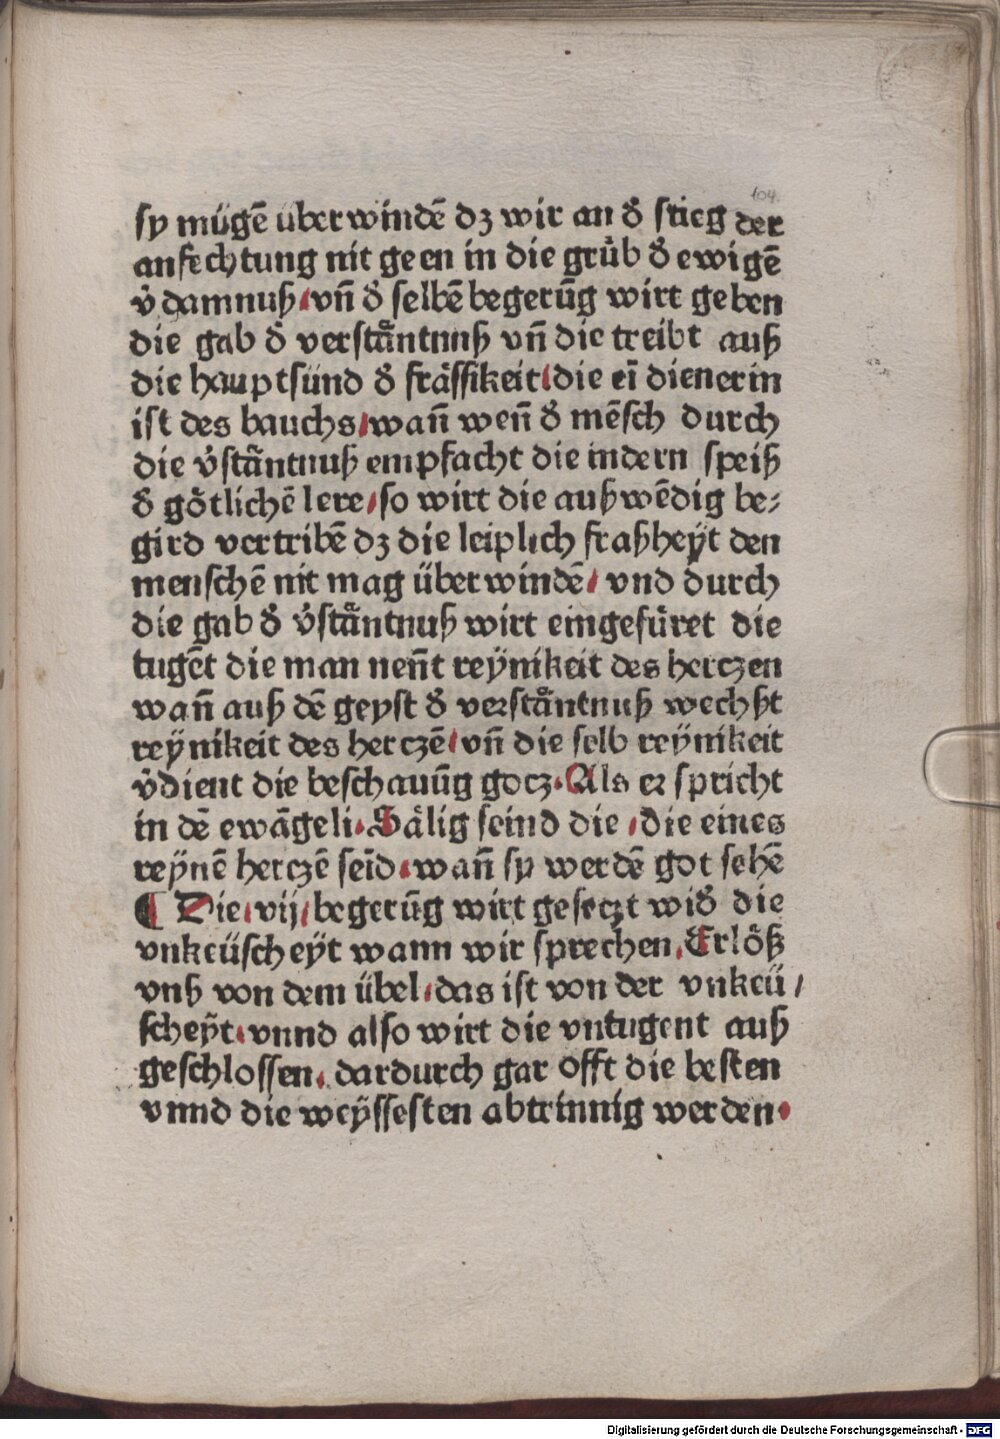 104.
sy mügē überwindē dꝫ wir an d̕ stieg der
anfechtung nit geen in die grůb d̕ ewigē
v̕damnuß / vn̄ d̕ selbē begerūg wirt geben
die gab d̕ verstäntnuß vn̄ die treibt auß
die hauptsünd d̕ frässikeit / die eī dienerin
ist des bauchs / wan̄ wen̄ d̕ mēsch durch
die v̕stäntnuß empfacht die indern speiß
d̕ götlichē lere / so wirt die außwēdig be⸗
gird vertribē dꝫ die leiplich fraßheÿt den
menschē nit mag überwindē / vnd durch
die gab d̕ v̕stäntnuß wirt eingefüret die
tugēt die man nen̄t reÿnikeit des herczen
wan̄ auß dē geyst d̕ verstäntnuß wechßt
reÿnikeit des herczē / vn̄ die selb reÿnikeit
v̕dient die beschauūg gocz. Als er spricht
in dē ewāgeli. Sälig seind die / die eines
reÿnē herczē seīd. wan̄ sy werdē got sehē
¶ Die / vij / begerūg wirt geseczt wid̕ die
vnkeüscheÿt wann wir sprechen. Erlöß
vnß von dem übel / das ist von der vnkeü /
scheÿt. vnnd also wirt die vntugent auß
geschlossen. dardurch gar offt die besten
vnnd die weÿssesten abtrinnig werden.
Digitalisierung gefördert durch die Deutsche Forschungsgemeinschaft - DFG